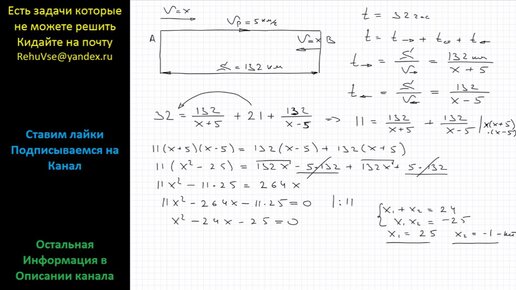 Есть задачи которые
не можете решить
Кидайте на почту
RehuVse@yandex.ru
Ставим лайки
Подписываемся на
Канал
Остальная
Информация в
Описании канала
V=x
Vp=5км/ч
A
V=x
B
S=132км
t = 32 час
t = t→ + tс + t←
t→ = S/V→ = 132км/x+5
t← = S/V← = 132/x-5
32 = 132/x+5 + 21 + 132/x-5 ⇒ 11 = 132/x+5 + 132/x-5 |·(x+5)·(x-5)
11(x+5)(x-5) = 132(x-5) + 132(x+5)
11(x²-25) = 132x - 5·132 + 132x + 5·132
11x² - 11·25 = 264x
11x² - 264x - 11·25 = 0 |:11
x² - 24x - 25 = 0
x₁ + x₂ = 24
x₁ x₂ = -25
x₁ = 25 x₂ = -1